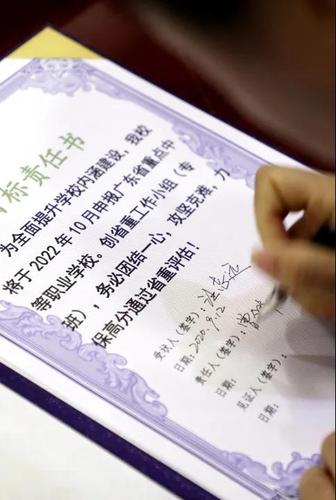 标责任书
为全面提升学校内涵建设，我校
将于2022年10月申报广东省重点中
等职业学校。创省重工作小组（专
班），务必团结一心，攻坚克难，力
保高分通过省重评估！
受状人（签字）：
日期：2020.9.12
责任人（签字）：
日期：
见证人（签字）：
日期：